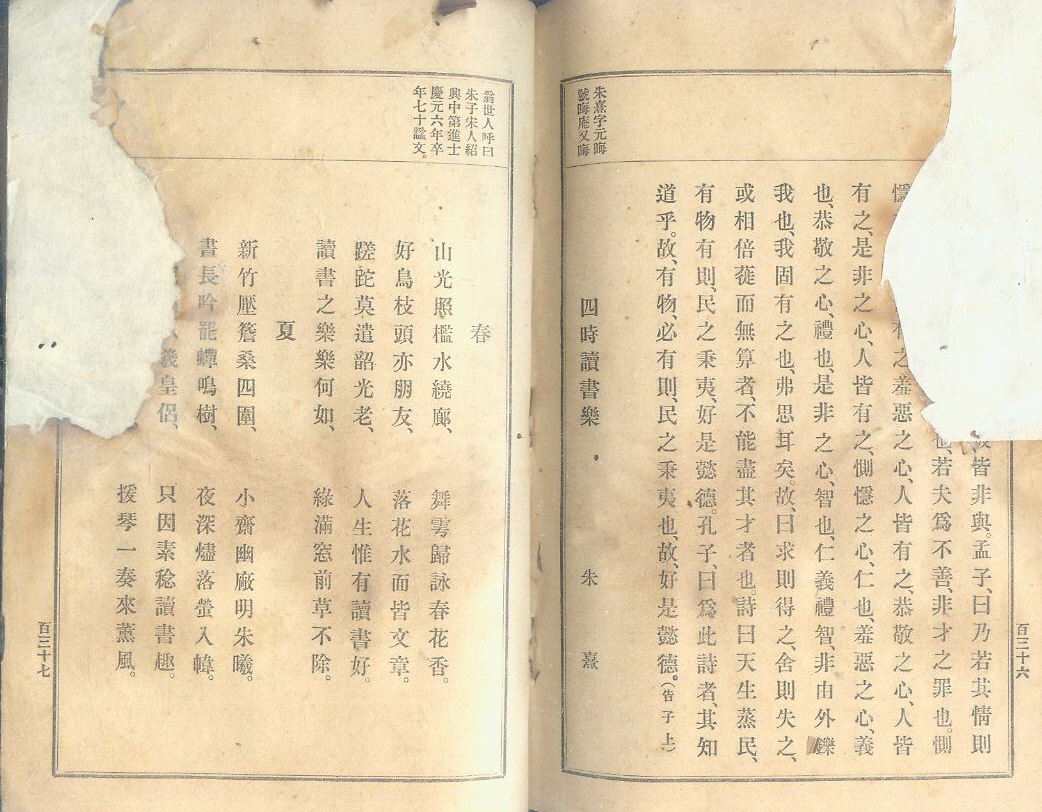 朱熹字元晦
號晦庵又晦
皆非與。孟子、曰乃若其情則
也、若夫爲不善、非才之罪也。惻
之羞惡之心、人皆有之、恭敬之心、人皆
有之、是非之心、人皆有之、惻隱之心、仁也、羞惡之心、義
也、恭敬之心、禮也、是非之心、智也、仁義禮智、非由外鑠
我也、我固有之也、弗思耳矣。故、曰求則得之、舍則失之、
或相倍蓰而無算者、不能盡其才者也。詩曰天生蒸民、
有物有則、民之秉夷、好是懿德。孔子、曰爲此詩者、其知
道乎。故、有物、必有則、民之秉夷也、故、好是懿德。(告子上)
四時讀書樂 朱熹
百三十六
翁世人呼曰
朱子宋人紹
興中第進士
慶元六年卒
年七十諡文。
春
山光照檻水繞廊、 舞雩歸詠春花香。
好鳥枝頭亦朋友、 落花水面皆文章。
蹉跎莫遣韶光老、 人生惟有讀書好。
讀書之樂樂何如、 綠滿窓前草不除。
夏
新竹壓簷桑四圍、 小齋幽敞明朱曦。
晝長吟罷蟬鳴樹、 夜深燼落螢入幃。
羲皇侶、 只因素稔讀書趣。
援琴一奏來薰風。
百三十七